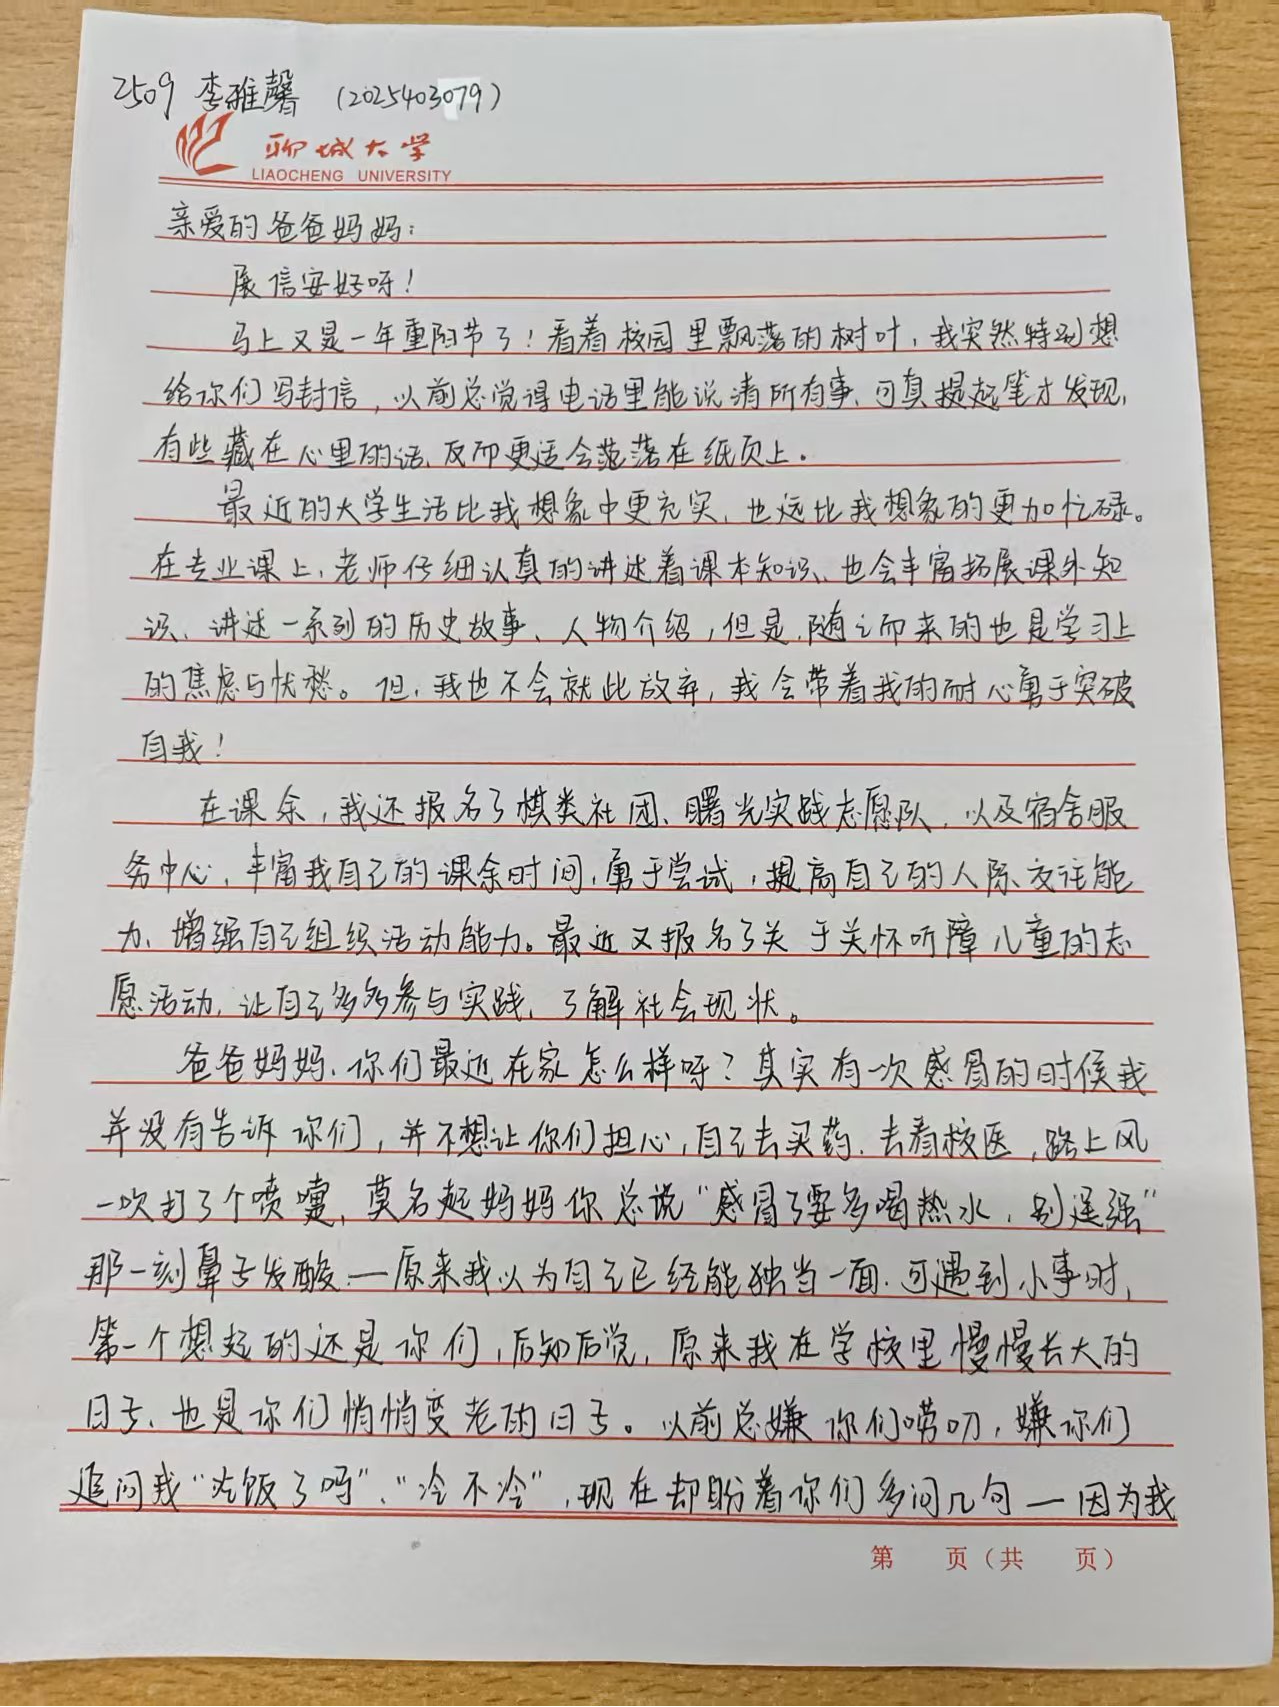 2509 李雅馨 (2025403079)
聊城大学
LIAOCHENG UNIVERSITY
亲爱的爸爸妈妈:
展信安好呀!
马上又是一年重阳节了!看着校园里飘落的树叶,我突然特别想
给你们写封信,以前总觉得电话里能说清所有事、可真提起笔才发现,
有些藏在心里的话、反而更适合落在纸页上。
最近的大学生活比我想象中更充实、也远比我想象的更加忙碌。
在专业课上、老师仔细认真的讲述着课本知识、也会丰富拓展课外知
识、讲述一系列的历史故事、人物介绍,但是,随之而来的也是学习上
的焦虑与忧愁。但,我也不会就此放弃,我会带着我的耐心勇于突破
自我!
在课余,我还报名了棋类社团、曙光实践志愿队,以及宿舍服
务中心,丰富我自己的课余时间,勇于尝试,提高自己的人际交往能
力、增强自己组织活动能力。最近又报名了关于关怀听障儿童的志
愿活动,让自己多多参与实践,了解社会现状。
爸爸妈妈、你们最近在家怎么样呀?其实有一次感冒的时候我
并没有告诉你们,并不想让你们担心,自己去买药、去看校医,路上风
一吹打了个喷嚏,莫名起妈妈你总说“感冒了要多喝热水,别逞强”
那一刻鼻子发酸—原来我以为自己已经能独当一面,可遇到小事时,
第一个想起的还是你们,后知后觉,原来我在学校里慢慢长大的
日子、也是你们悄悄变老的日子。以前总嫌你们唠叨,嫌你们
追问我“吃饭了吗”、“冷不冷”,现在却盼着你们多问几句—因为我
第 页(共 页)